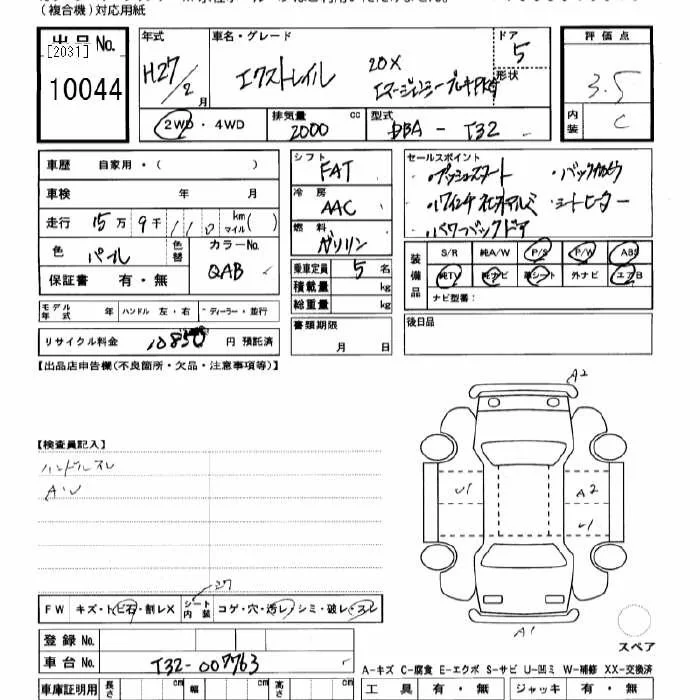 (複合機)対応用紙
出品No.
[2031]
10044
年式
H27/2月
車名・グレード
エクストレイル
20X
エマージェンシーブレーキPKG
ドア
5
形状
評価点
3.5
内装
C
2WD・4WD
排気量
2000 cc
型式
DBA-T32
車歴 自家用・( )
車検 年 月
走行 15万9千110 km マイル( )
色 パール
色替
カラーNo.
QAB
保証書 有・無
モデル年式 年 ハンドル 左・右 ディーラー・並行
リサイクル料金 10850 円 預託済
シフト
FAT
冷房
AAC
燃料
ガソリン
乗車定員 5 名
積載量 kg
総重量 kg
書類期限
月 日
セールスポイント
・プッシュスタート ・バックカメラ
・17インチ社外アルミ ・シートヒーター
・パワーバックドア
装備品
S/R 純A/W P/S P/W ABS
純TV 純ナビ 革シート 外ナビ エアB
ナビ型番:
後日品
【出品店申告欄(不良箇所・欠品・注意事項等)】
【検査員記入】
ハンドルスレ
A・U
A2
U1
A2
U1
A1
スペア
27
FW キズ・トビ石・割レX シート内装 コゲ・穴・汚レ・シミ・破レ・スレ
登録No.
車台No. T32-007763
車庫証明用 長さ cm 幅 cm 高さ cm
A-キズ C-腐食 E-エクボ S-サビ U-凹ミ W-補修 XX-交換済
工具 有・無 ジャッキ 有・無